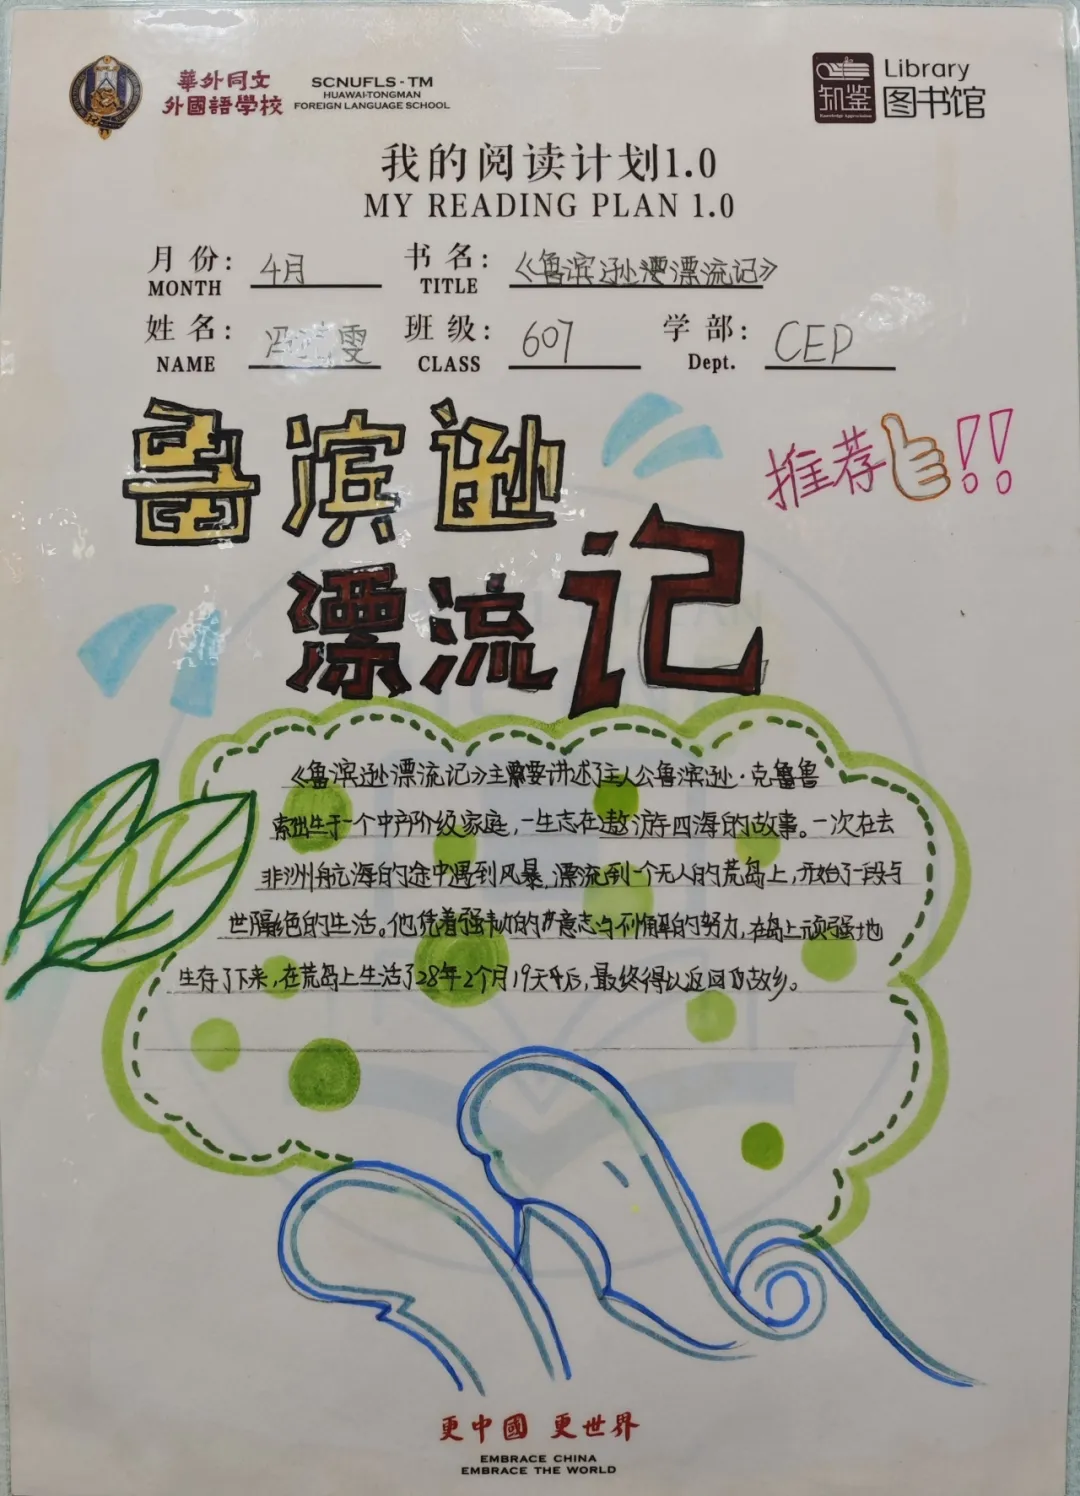 華外同文
外國語學校
SCNUFLS-TM
HUAWAI·TONGMAN
FOREIGN LANGUAGE SCHOOL
知鉴
Knowledge Appreciation
Library
图书馆
我的阅读计划1.0
MY READING PLAN 1.0
月份: 4月 书名: 《鲁滨逊漂流记》
MONTH TITLE
姓名: 冯 雯 班级: 607 学部: CEP
NAME CLASS Dept.
鲁滨逊
推荐!!
漂流记
《鲁滨逊漂流记》主要讲述了主人公鲁滨逊·克鲁
索出生于一个中产阶级家庭,一生志在遨游四海的故事。一次在去
非洲航海的途中遇到风暴,漂流到一个无人的荒岛上,开始了一段与
世隔绝的生活。他凭着强韧的意志与不懈的努力,在岛上顽强地
生存了下来,在荒岛上生活了28年2个月19天后,最终得以返回故乡。
更中國 更世界
EMBRACE CHINA
EMBRACE THE WORLD